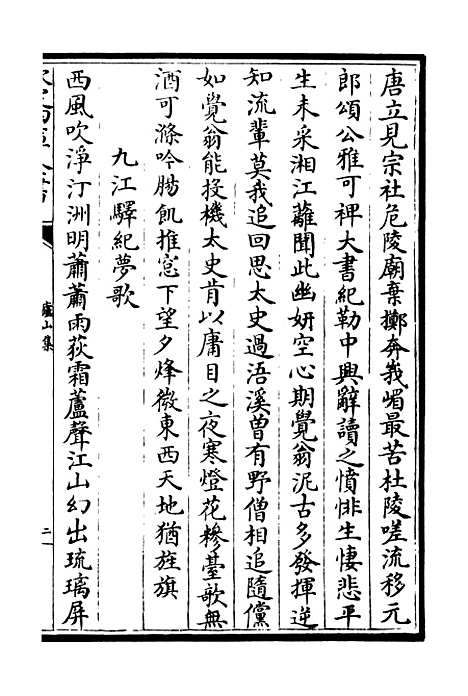 唐立見宗社危陵廟棄擲奔峩嵋最苦杜陵嗟流移元
郎頌公雅可裨大書紀勒中興辭讀之憤悱生悽悲平
生未采湘江蘺聞此幽妍空心期覺翁泥古多發揮逆
知流輩莫我追回思太史過浯溪曾有野僧相追隨儻
如覺翁能投機太史肯以庸目之夜寒燈花糝臺歌無
酒可滌吟腸飢推窓下望夕烽微東西天地猶旌旗
九江驛紀夢歌
西風吹淨汀洲明蕭蕭雨荻霜蘆聲江山幻出琉璃屏
廬山集